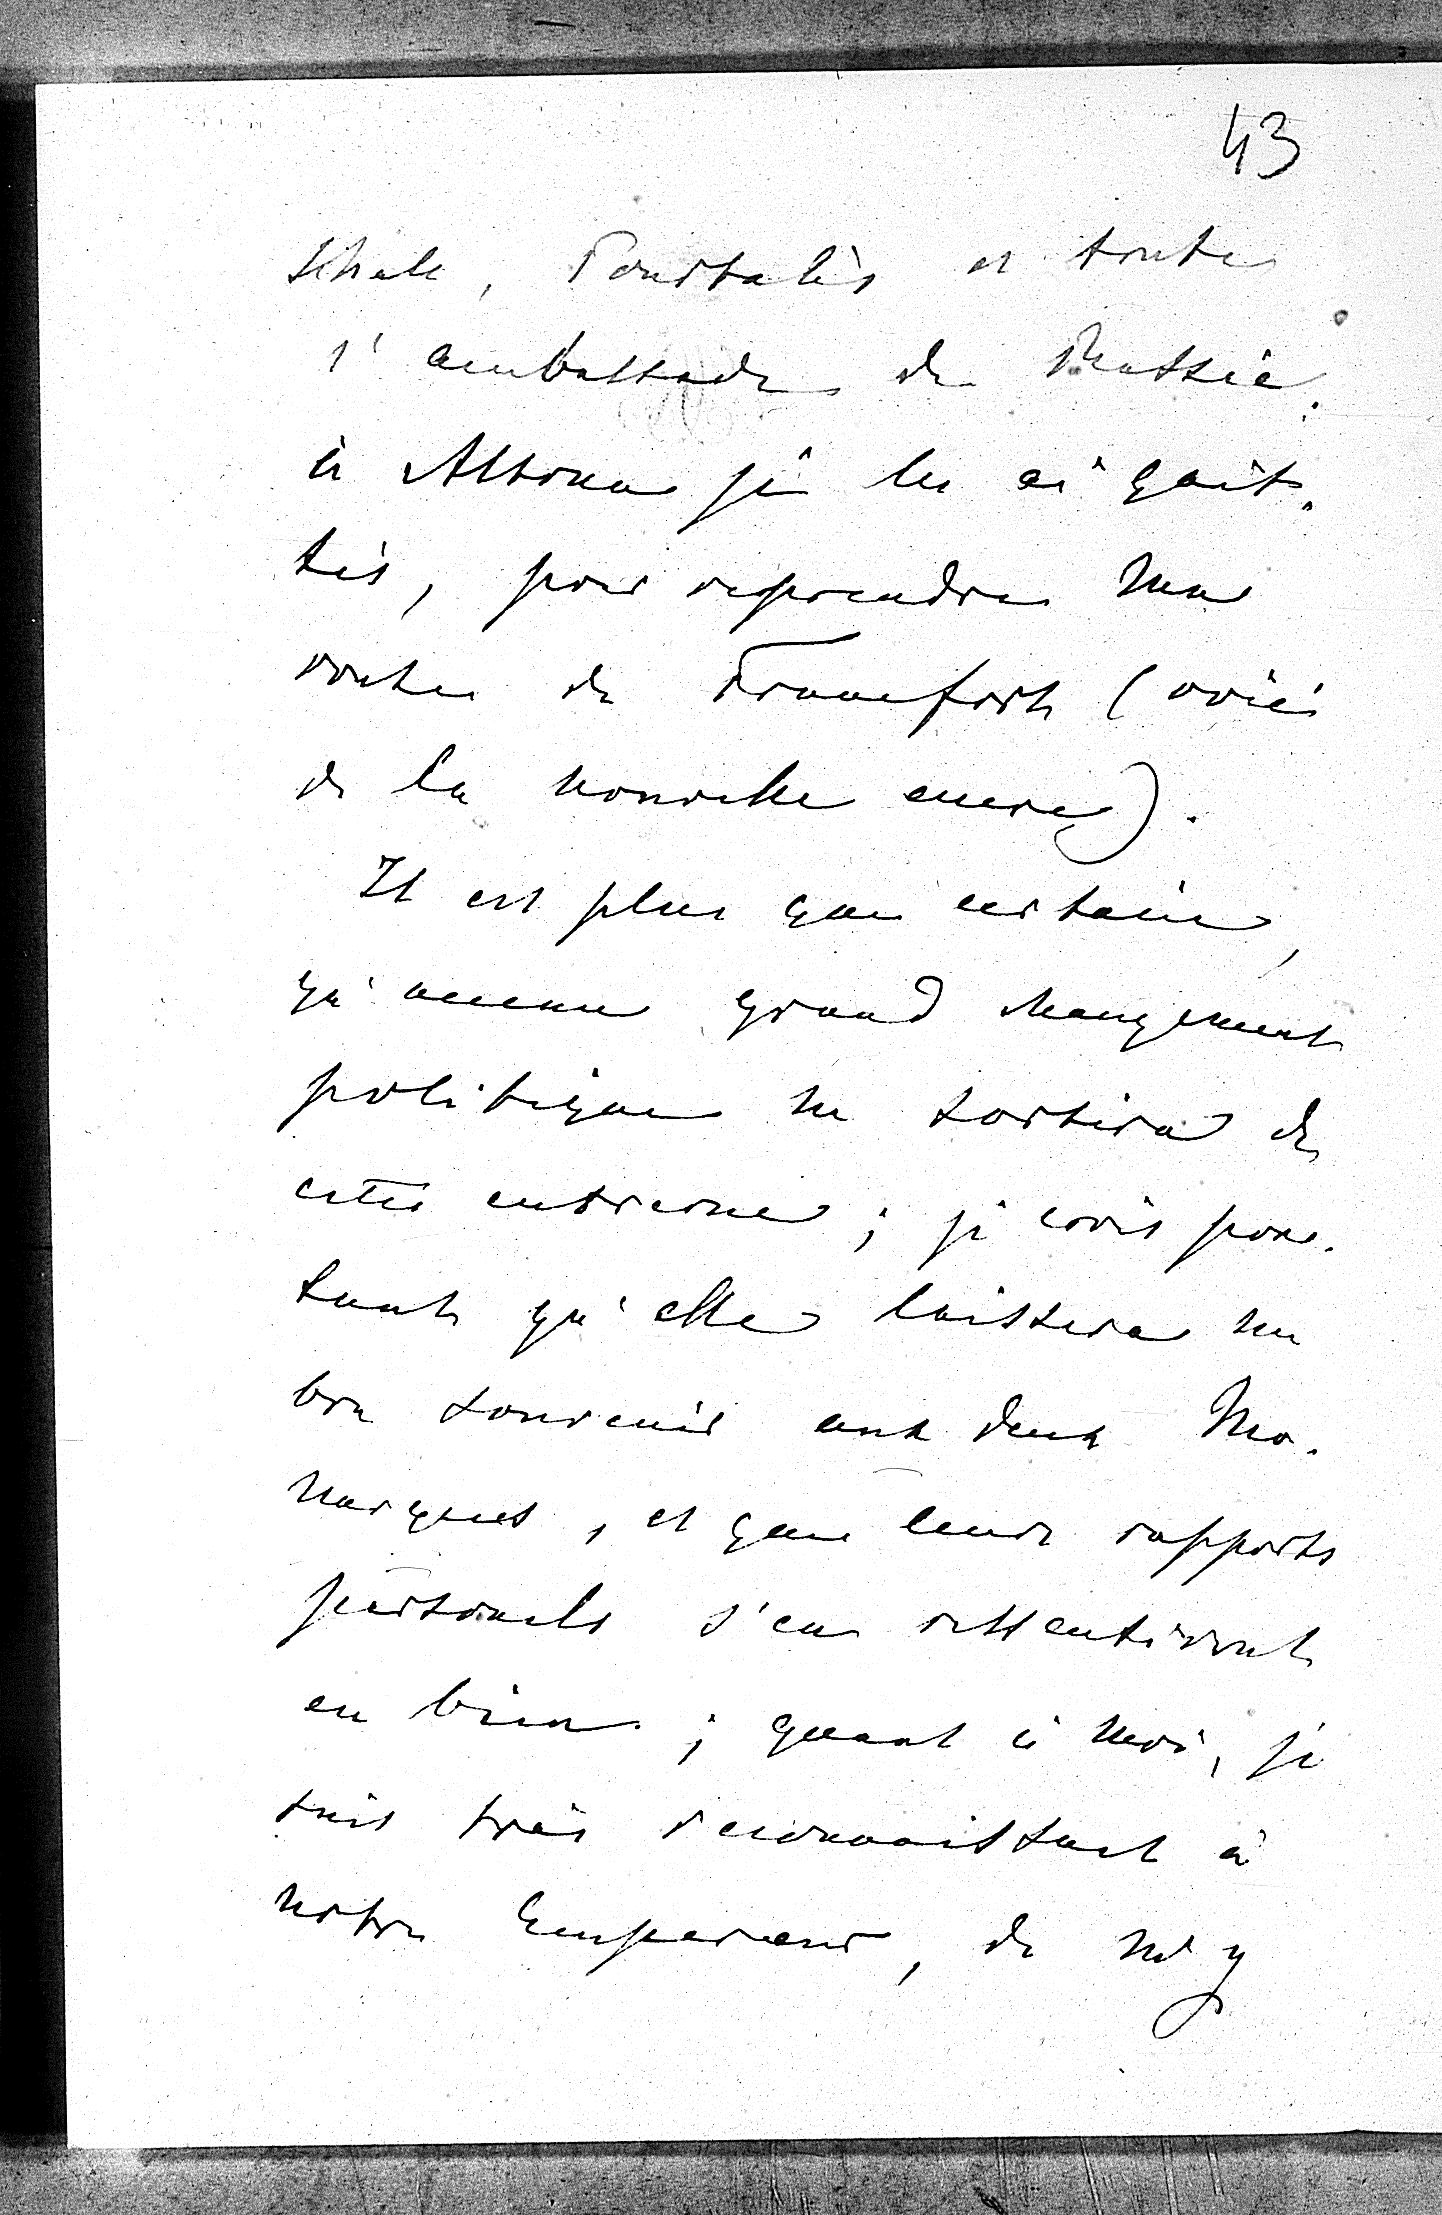 43
schale, Pourtalès et toute
l'ambassade de Prusse.
à Altona je les ai quit-
tés, pour reprendre ma
route de Francfort (
de la nouvelle encre).
Il est plus que certain,
qu'aucun grand changement
politique ne sortira de
cette entrevue; je crois pour-
tant qu'elle laissera un
bon souvenir aux deux Mo-
narques, et que leurs rapports
personels s'en ressentiront
en bien; quant à moi, je
suis très reconnaissant à
notre Empereur, de m'y